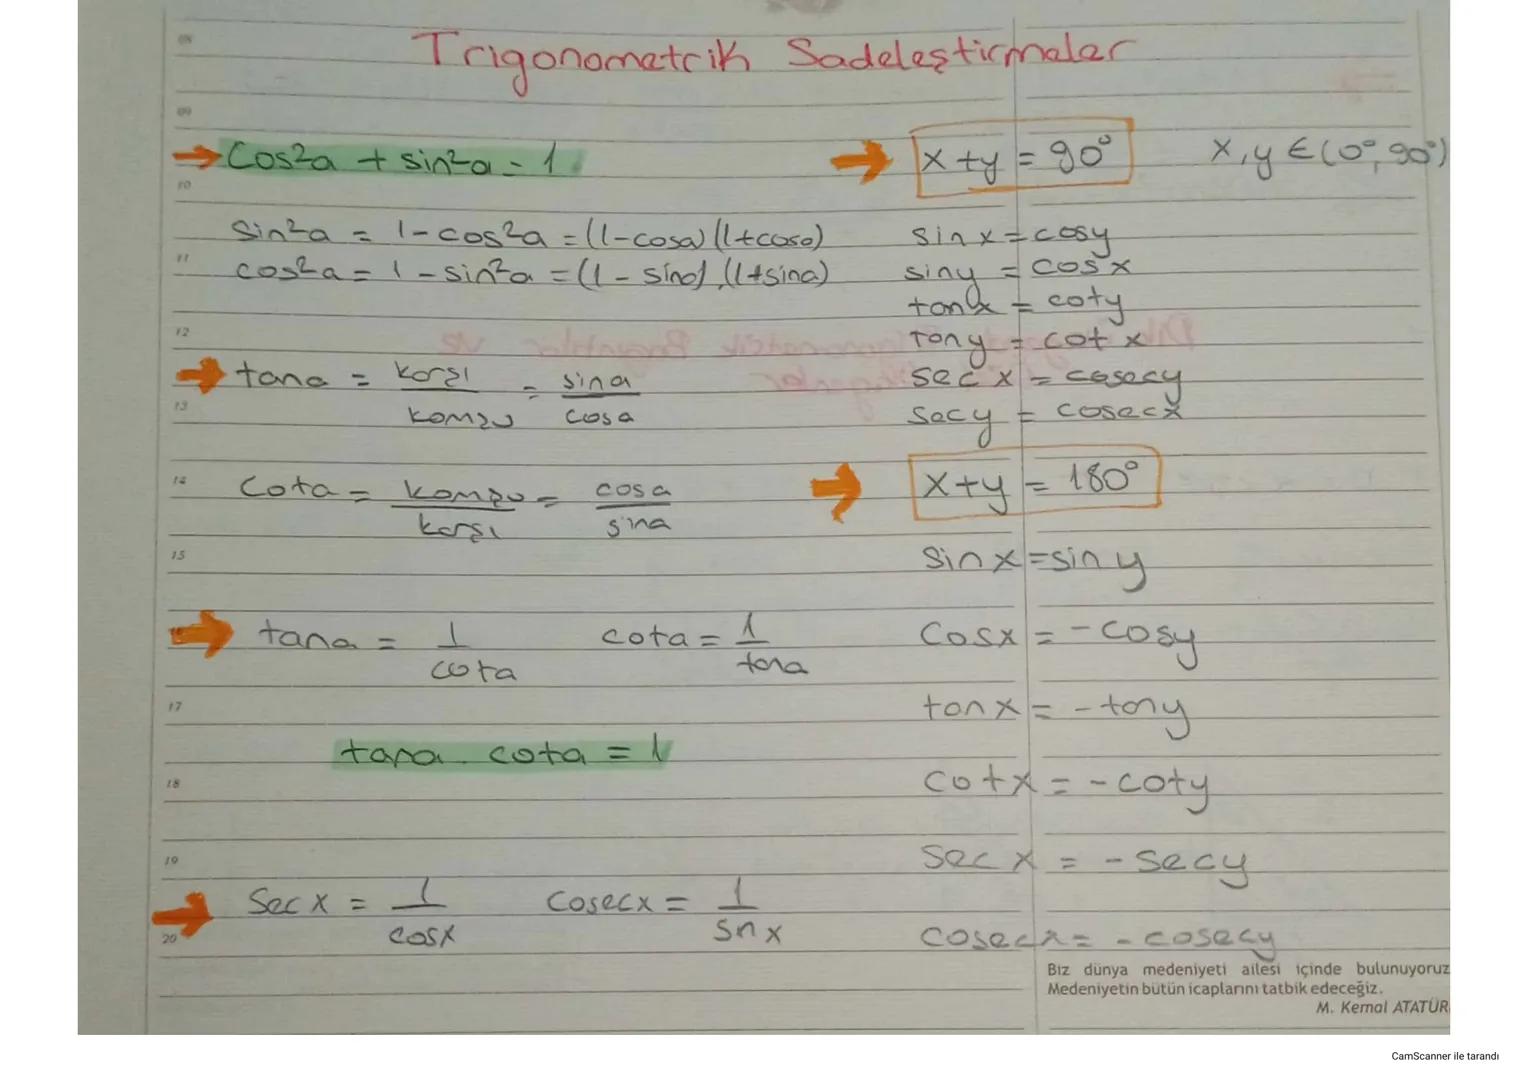 Trigonometrik Sadeleştirmeler
→ Cos²a + sin²a = 1
sin²a = 1-cos²a = (1-cosa)(1+cosa)
cos²a = 1 - sin²a = (1 - sina).(1+sina)
→ tana = karşı/komşu = sina/cosa
Cota = komşu/karşı = cosa/sina
→ tana = 1/cota cota = 1/tana
tana . cota = 1
→ Sec x = 1/cosx Cosecx = 1/snx
→ x+y = 90° x,y ∈ (0°, 90°)
sinx = cosy
siny = cosx
tanx = coty
tany = cotx
sec x = cosecy
secy = cosecx
→ x+y = 180°
Sinx = siny
Cosx = -cosy
tanx = -tany
cotx = -coty
Secx = -Secy
Cosecx = -cosecy
08
09
10
11
12
13
14
15
16
17
18
19
20
Biz dünya medeniyeti ailesi içinde bulunuyoruz
Medeniyetin bütün icaplarını tatbik edeceğiz.
M. Kemal ATATÜR
CamScanner ile tarandı